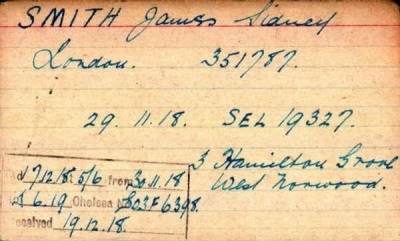 SMITH James Sidney
London. 351787.
29. 11. 18. SEL 19327.
3 Hamilton Grove
West Norwood.
17/12/18 5/6 from 30.11.18
6.19 Chelsea No. 803F6398.
Received 19.12.18.